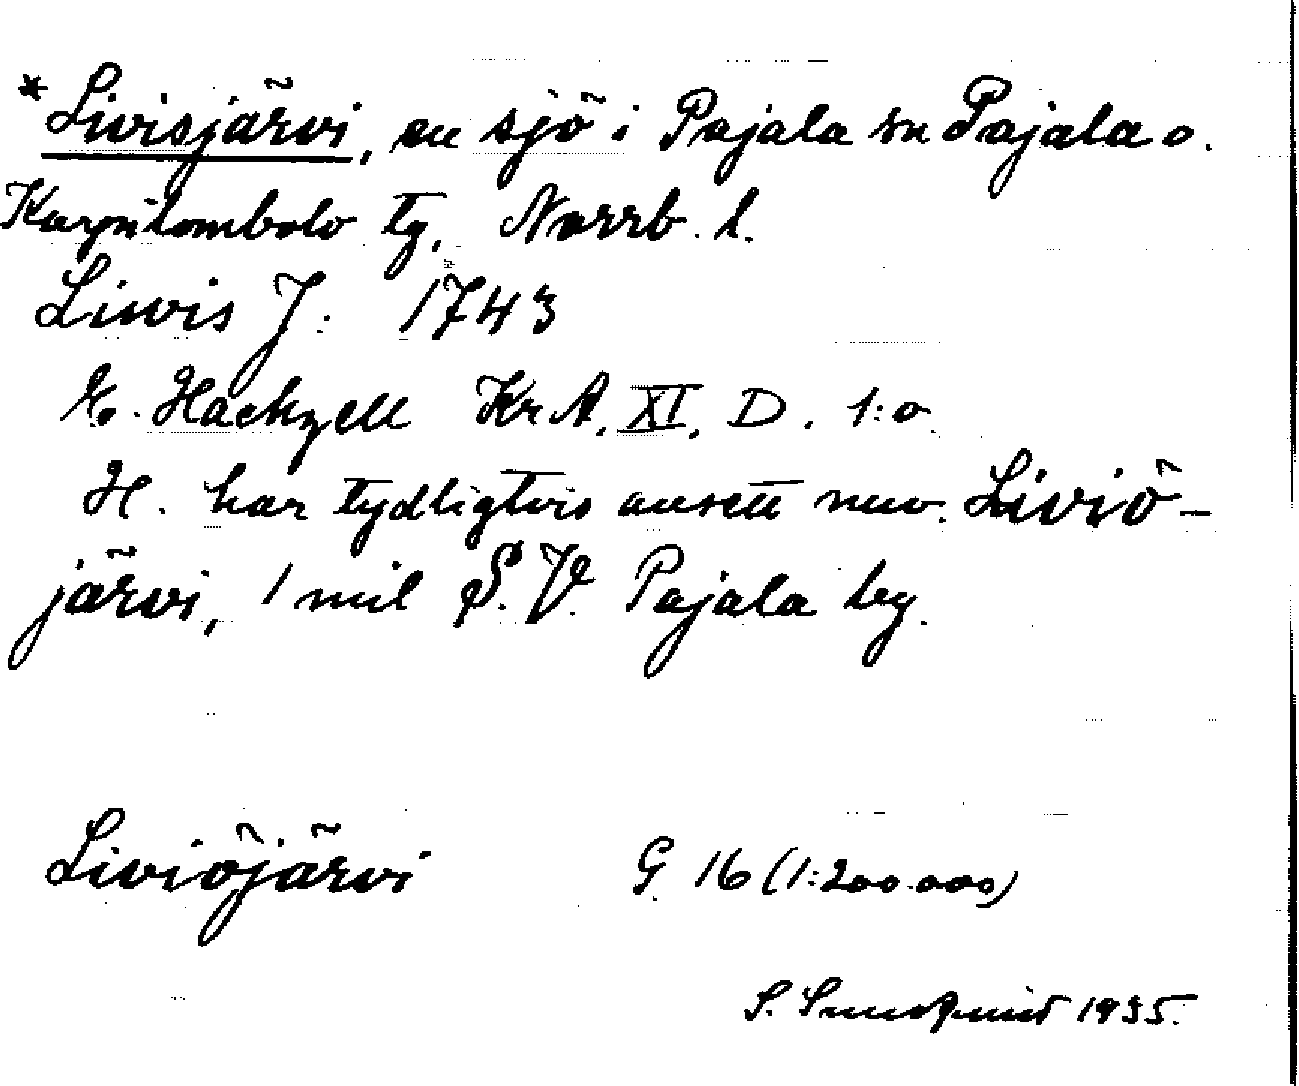 *Livisjärvi, en sjö i Pajala sn Pajala o.
Korpilombolo tg, Norrb. l.
Liwis J: 1743
E. Hackzell Kr A. XI. D. 1:o.
H. har tydligtvis avsett nuv. Liviö-
järvi, 1 mil S.V. Pajala by.
Liviöjärvi G. 16 (1:200.000)
S. Sundqvist 1935.